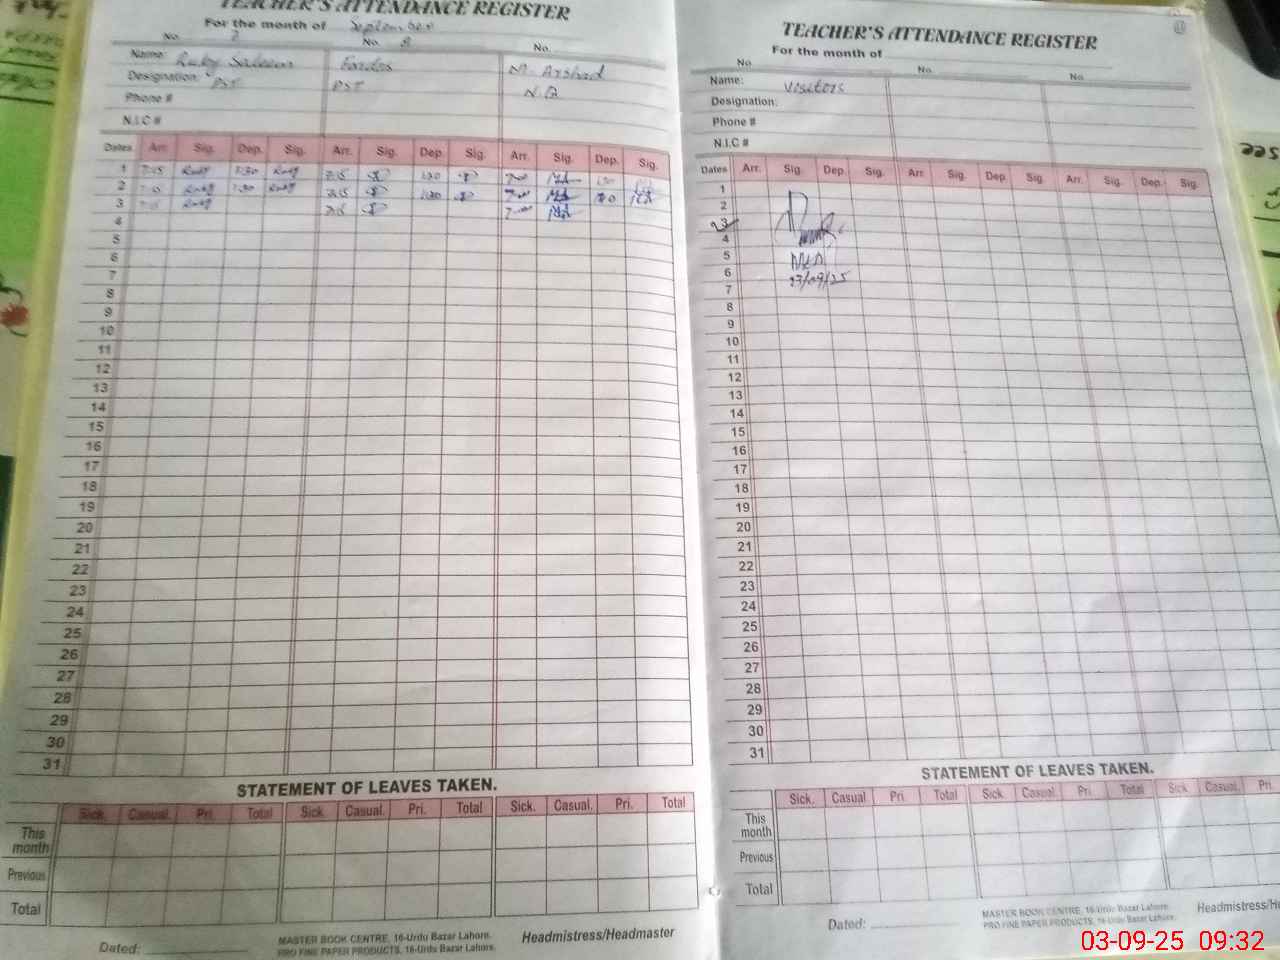 TEACHER'S ATTENDANCE REGISTER
For the month of September
No. 2 No. No.
Name: Ruby Saleem M. Arshad
Designation: PST PST N.Q
Phone #
N.I.C #
Dates Arr. Sig. Dep. Sig. Arr. Sig. Dep. Sig. Arr. Sig. Dep. Sig.
1 7:15 Ruby 1:30 Ruby 7:15 1:30 7:00
2 Ruby 1:30 Ruby 7:15 1:30 7:00
3 Ruby 7:15 7:00
4
5
6
7
8
9
10
11
12
13
14
15
16
17
18
19
20
21
22
23
24
25
26
27
28
29
30
31
STATEMENT OF LEAVES TAKEN.
Sick. Casual. Pri. Total Sick. Casual. Pri. Total Sick. Casual. Pri. Total
This month
Previous
Total
Dated:
MASTER BOOK CENTRE, 16-Urdu Bazar Lahore.
PRO FINE PAPER PRODUCTS, 16-Urdu Bazar Lahore.
Headmistress/Headmaster
TEACHER'S ATTENDANCE REGISTER
For the month of
No. No. No.
Name: Visitors
Designation:
Phone #
N.I.C #
Dates Arr. Sig. Dep. Sig. Arr. Sig. Dep. Sig. Arr. Sig. Dep. Sig.
1
2
3
4
5
6
7
8
9
10
11
12
13
14
15
16
17
18
19
20
21
22
23
24
25
26
27
28
29
30
31
STATEMENT OF LEAVES TAKEN.
Sick. Casual Pri. Total Sick. Casual. Pri. Total Sick Casual. Pri.
This month
Previous
Total
Dated:
MASTER BOOK CENTRE, 16-Urdu Bazar Lahore.
PRO FINE PAPER PRODUCTS, 16-Urdu Bazar Lahore.
03-09-25 09:32